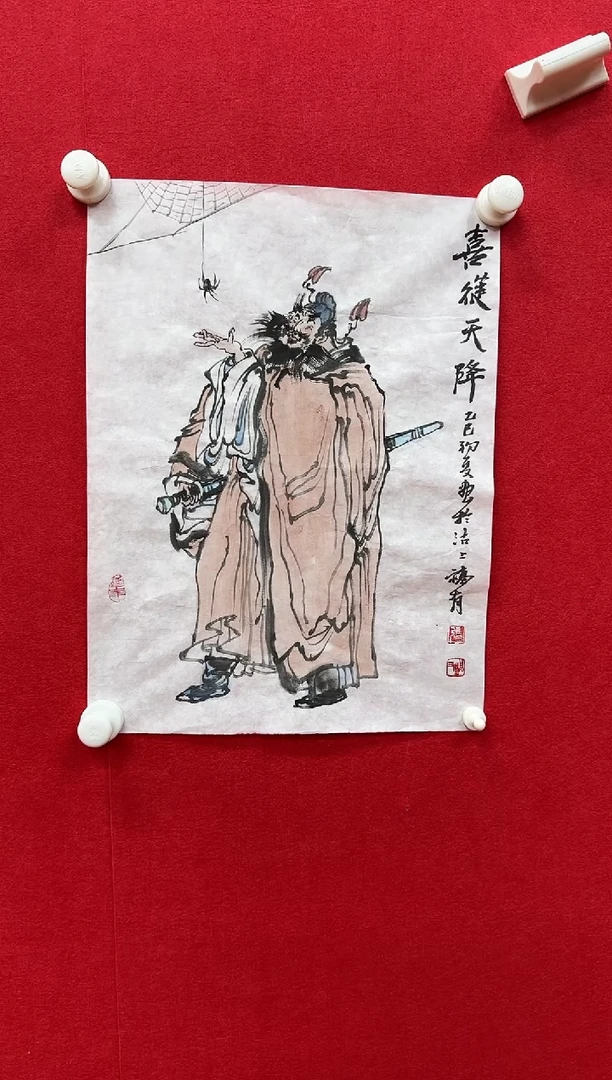 喜從天降
乙巳初夏畫於沽上